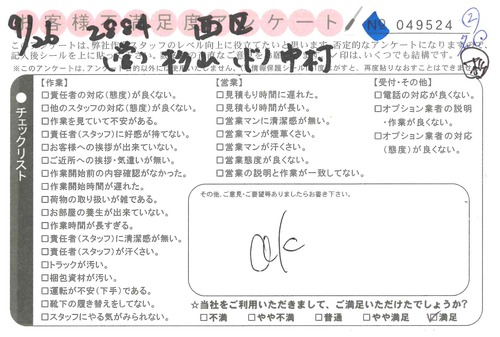 お客様満足度アンケート No 049524 ②
9/26 2884 西区
このアンケートは、弊社
※このアンケートは、
チェックリスト
【作業】
□責任者の対応(態度)が良くない。
□他のスタッフの対応(態度)が良くない。
□作業を見ていて不安がある。
□責任者(スタッフ)に好感が持てない。
□お客様への挨拶が出来ていない。
□ご近所への挨拶・気遣いが無い。
□作業開始前の内容確認がなかった。
□作業開始時間が遅れた。
□荷物の取り扱いが雑である。
□お部屋の養生が出来ていない。
□作業時間が長すぎる。
□責任者(スタッフ)に清潔感が無い。
□責任者(スタッフ)が汗くさい。
□トラックが汚い。
□梱包資材が汚い。
□運転が不安(下手)である。
□靴下の履き替えをしてない。
□スタッフにやる気がみられない。
【営業】
□見積もり時間に遅れた。
□見積もり時間が長い。
□営業マンに清潔感が無い。
□営業マンが煙草くさい。
□営業マンが汗くさい。
□営業態度が良くない。
□営業の説明と作業が一致してない。
【受付・その他】
□電話の対応が良くない。
□オプション業者の説明
・作業が良くない。
□オプション業者の対応
(態度)が良くない。
その他、ご意見・ご要望等ありましたらお書き下さい。
ok
☆当社をご利用いただきまして、ご満足いただけたでしょうか?
□不満 □やや不満 □普通 □やや満足 ☑満足